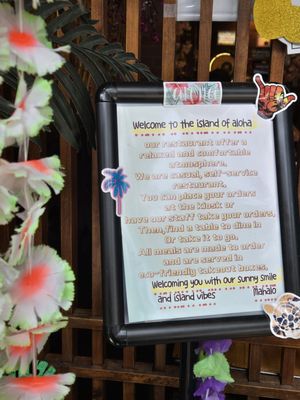 Welcome to the island of aloha
our restaurant offer a
relaxed and comfortable
atmosphere,
We are casual, self-service
restaurant,
You can place your orders
at the kiosk or
have our staff take your orders,
Then,find a table to dine in
Or take it to go,
All meals are made to order
and are served in
eco-friendly takeout boxes.
Welcoming you with our sunny smile
and island vibes
Mahalo